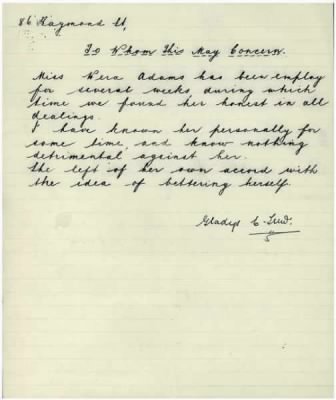 86 Haymond St,
To Whom This May Concern.
Miss Vera Adams has been employ
for several weeks, during which
time we found her honest in all
dealings.
I have known her personally for
some time, and know nothing
detrimental against her.
She left of her own accord with
the idea of bettering herself.
Gladys C.